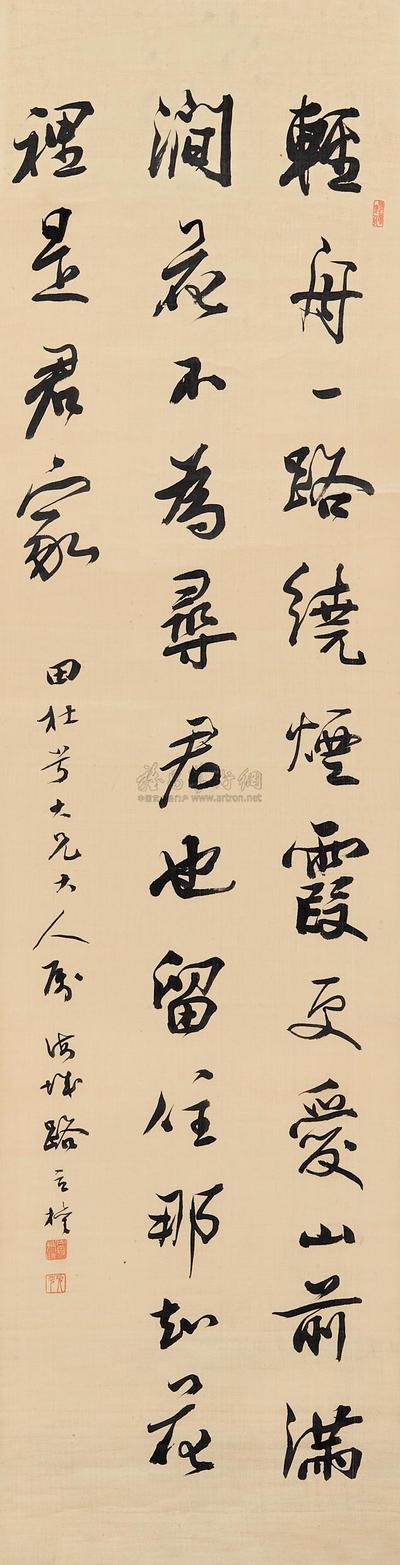 輕舟一路繞煙霞更愛山前滿
澗花不為尋君也留住那知花
裡是君家
田杜芳大兄大人屬 海城路
www.artron.net